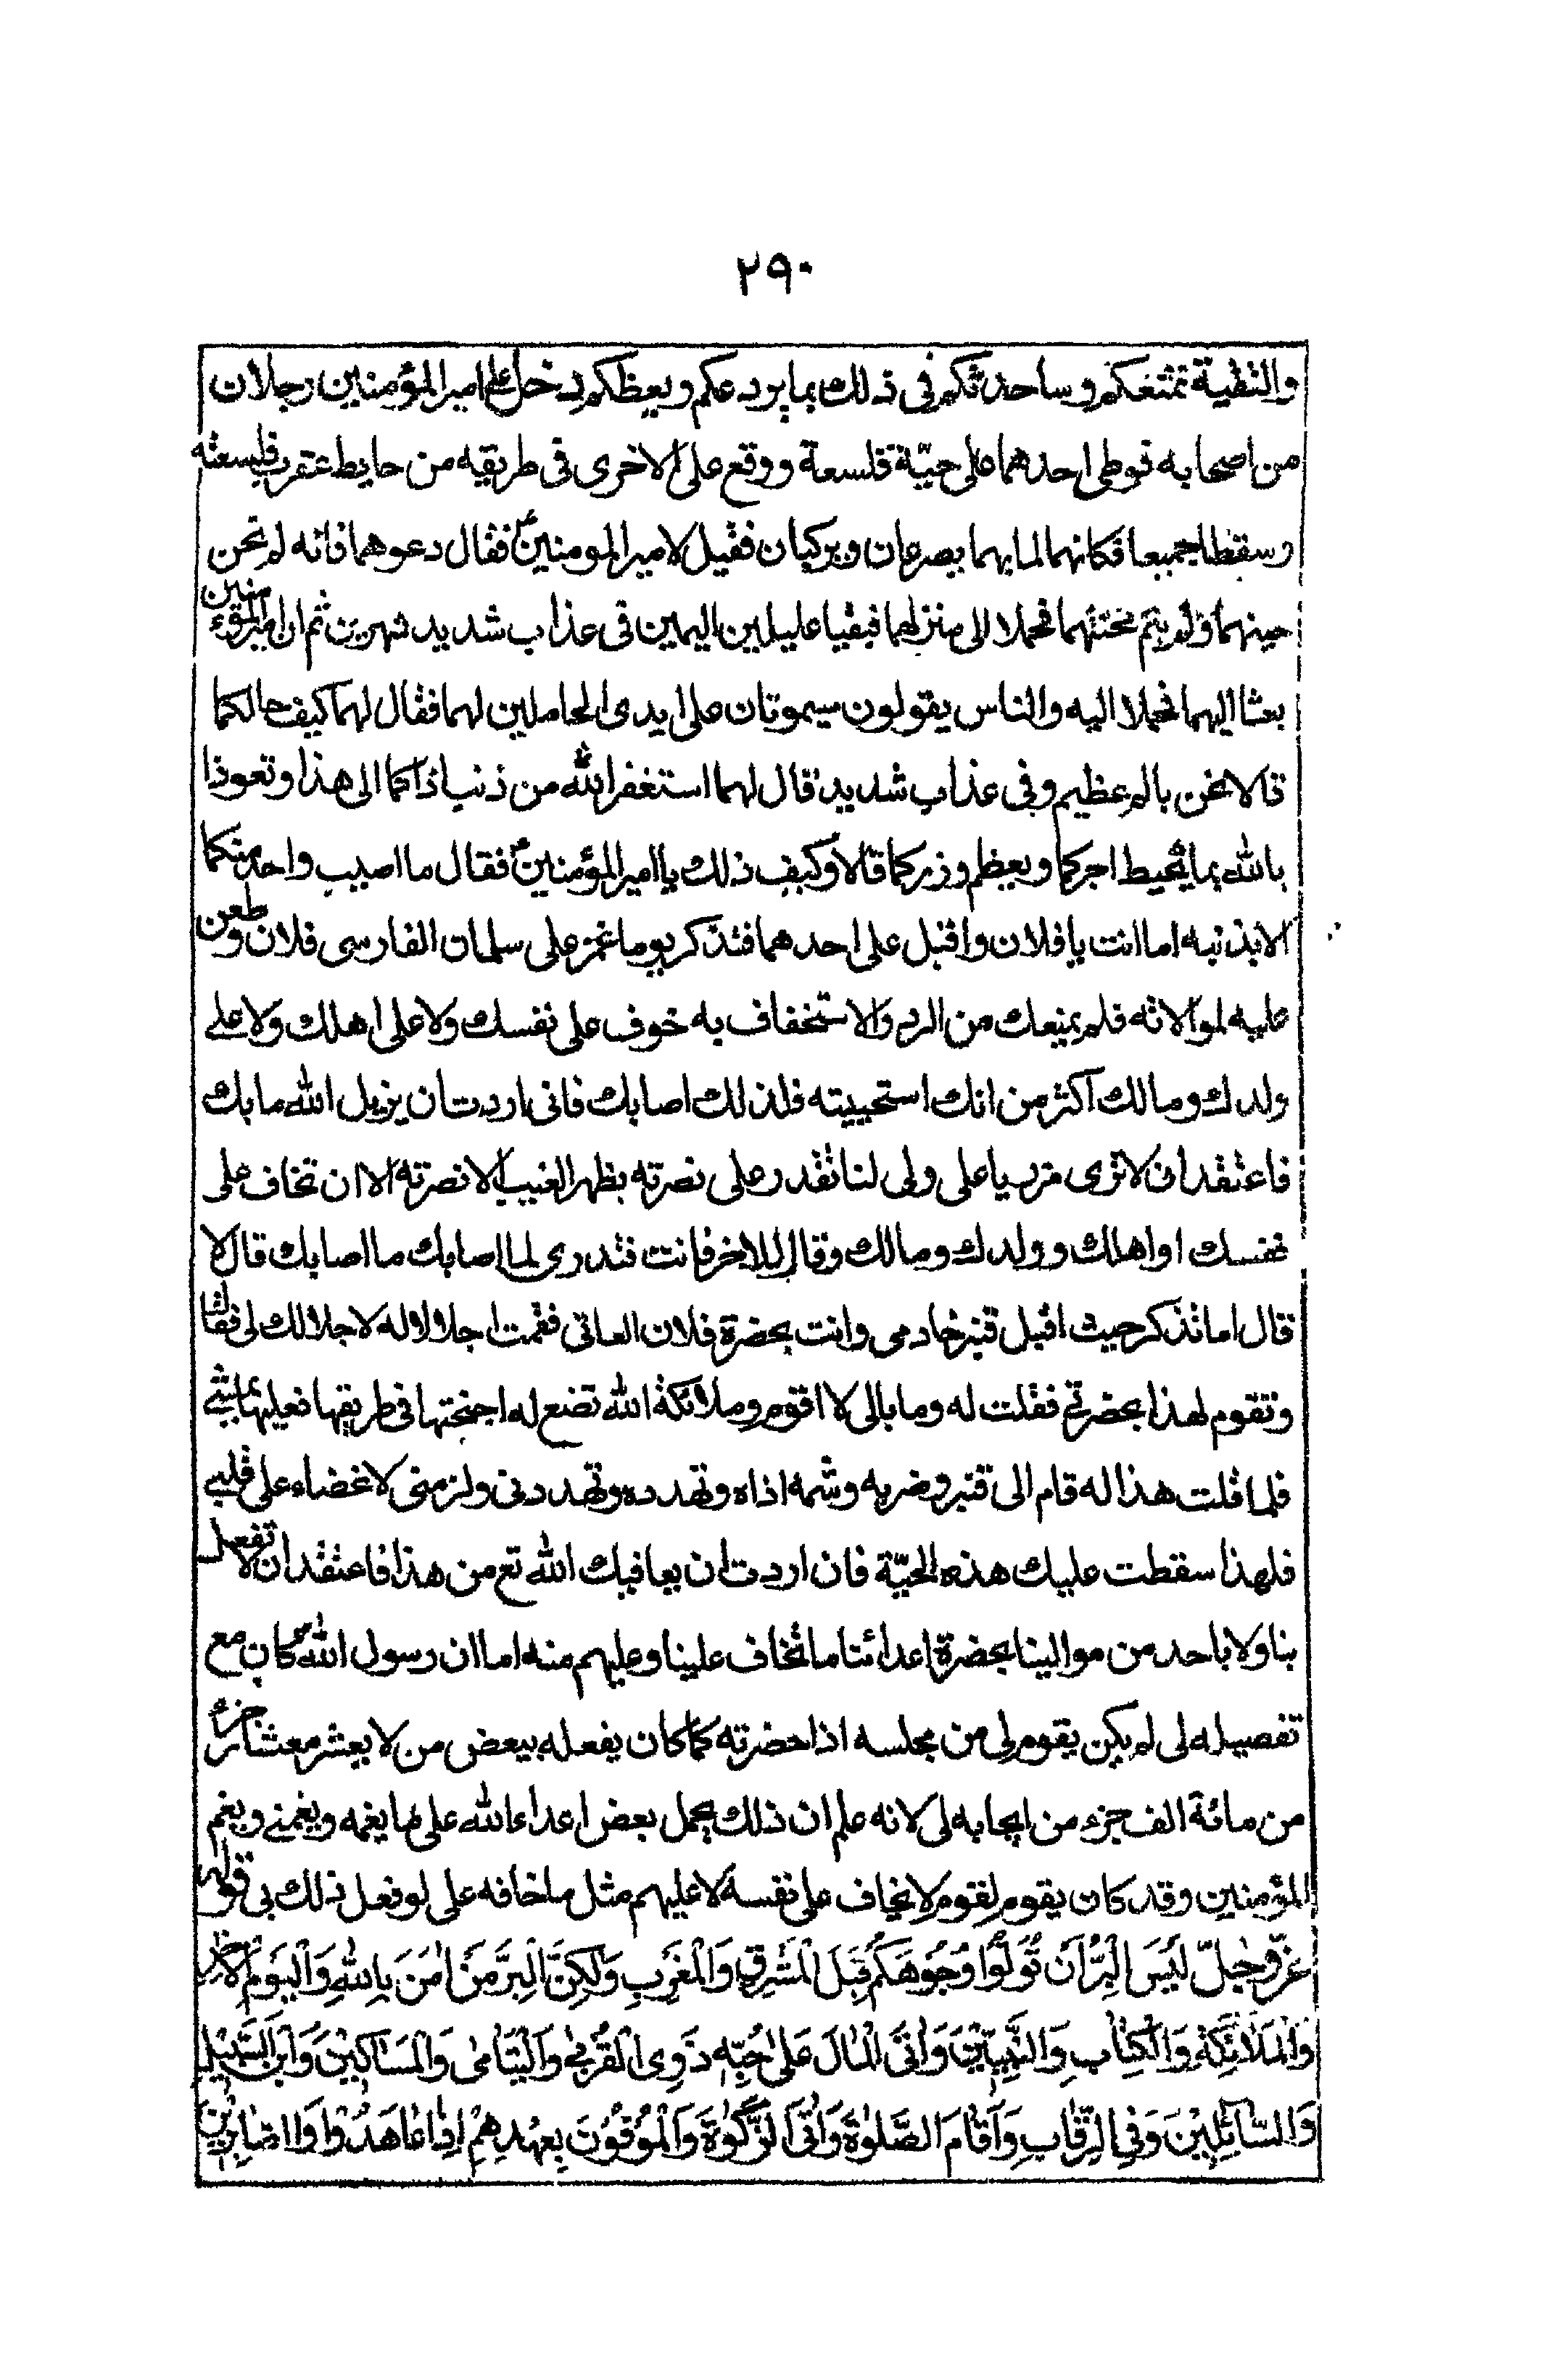 ٢٩٠
والتقية تمثعكم وساحدثكم فى ذلك بما يردعكم ويعظكم دخل على امير المؤمنين رجلان
من اصحابه فوطى احدهما على حيّة فلسعة ووقع على الاخرى فى طريقه من حايط عقرب فلسعته
وسقطا جميعا فكانهما لما بهما يصرعان ويركبان فقيل لامير المومنينؑ فقال دعوهما فانه لم تحن
حينهما ولم يتم محنتهما فحملا الى منزلهما فبقيا عليلين اليمين فى عذاب شديد شهرين ثم ان امير المؤمنين
بعثا اليهما فحملا اليه والناس يقولون سيموتان على ايدى الحاملين لهما فقال لهما كيف حالكما
قالا نحن بالم عظيم وفى عذاب شديد قال لهما استغفر الله من ذنب اذاكما الى هذا وتعوذا
بالله بما يحيط اجركما ويعظم وزركما قالا وكيف ذلك يا امير المؤمنينؑ فقال ما اصيب واحد منكما
الا بذنبه اما انت يا فلان واقبل على احدهما فتذكر يوما غمز على سلمان الفارسى فلان وطعن
عليه لموالاته فلم يمنعك من الرد والاستخفاف به خوف على نفسك ولا على اهلك ولا على
ولدك ومالك اكثر من انك استحييته فلذلك اصابك فانى اردت ان يزيل الله ما بك
فاعتقد ان لا ترى مزريا على ولى لنا تقدر على نصرته بظهر الغيب الا نصرته الا ان تخاف على
نفسك او اهلك وولدك ومالك وقال للاخر فانت فتدرى لما اصابك ما اصابك قال لا
قال اما تذكر حيث اقبل قنبر خادمى وانت بحضرة فلان العاتى فقمت اجلالا له لاجلالك لى فقال لك
وتقوم لهذا بحضرتى فقلت له وما بالى لا اقوم وملائكة الله تضع له اجنحتها فى طريقها فعليها يمشى
فلما قلت هذا له قام الى قنبر وضربه وشتمه اذاه وتهدده وتهددنى ولزمنى لاغضاء على قلبى
فلهذا سقطت عليك هذه الحيّة فان اردت ان يعافيك الله تع من هذا فاعتقد ان لا تفعل
بنا ولا باحد من موالينا بحضرة اعدائنا ما تخاف علينا وعليهم منه اما ان رسول اللهؐ كان مع
تفصيله لى لم يكن يقوم لى من مجلسه اذا حضرته كما كان يفعله ببعض من لا يعشر معشار جزء
من مائة الف جزء من ايجابه لى لانه علم ان ذلك يحمل بعض اعداء الله على ما يغمه ويغمنى ويغم
المؤمنين وقد كان يقوم لقوم لا يخاف على نفسه لا عليهم مثل ما خافه على لو فعل ذلك بى قوله
عزّ وجلّ لَيْسَ الْبِرَّ اَنْ تُوَلُّوا وُجُوهَكُمْ قِبَلَ الْمَشْرِقِ وَالْمَغْرِبِ وَلٰكِنَّ الْبِرَّ مَنْ اٰمَنَ بِاللّٰهِ وَالْيَوْمِ الْاٰخِرِ
وَالْمَلٰائِكَةِ وَالْكِتٰابِ وَالنَّبِيّٖنَ وَاٰتَى الْمٰالَ عَلىٰ حُبِّهٖ ذَوِى الْقُرْبىٰ وَالْيَتٰامىٰ وَالْمَسٰاكِيْنَ وَابْنَ السَّبِيْلِ
وَالسّٰائِلِيْنَ وَفِى الرِّقٰابِ وَاَقٰامَ الصَّلٰوةَ وَاٰتَى الزَّكٰوةَ وَالْمُوْفُوْنَ بِعَهْدِهِمْ اِذٰا عٰاهَدُوْا وَالصّٰابِرِيْنَ